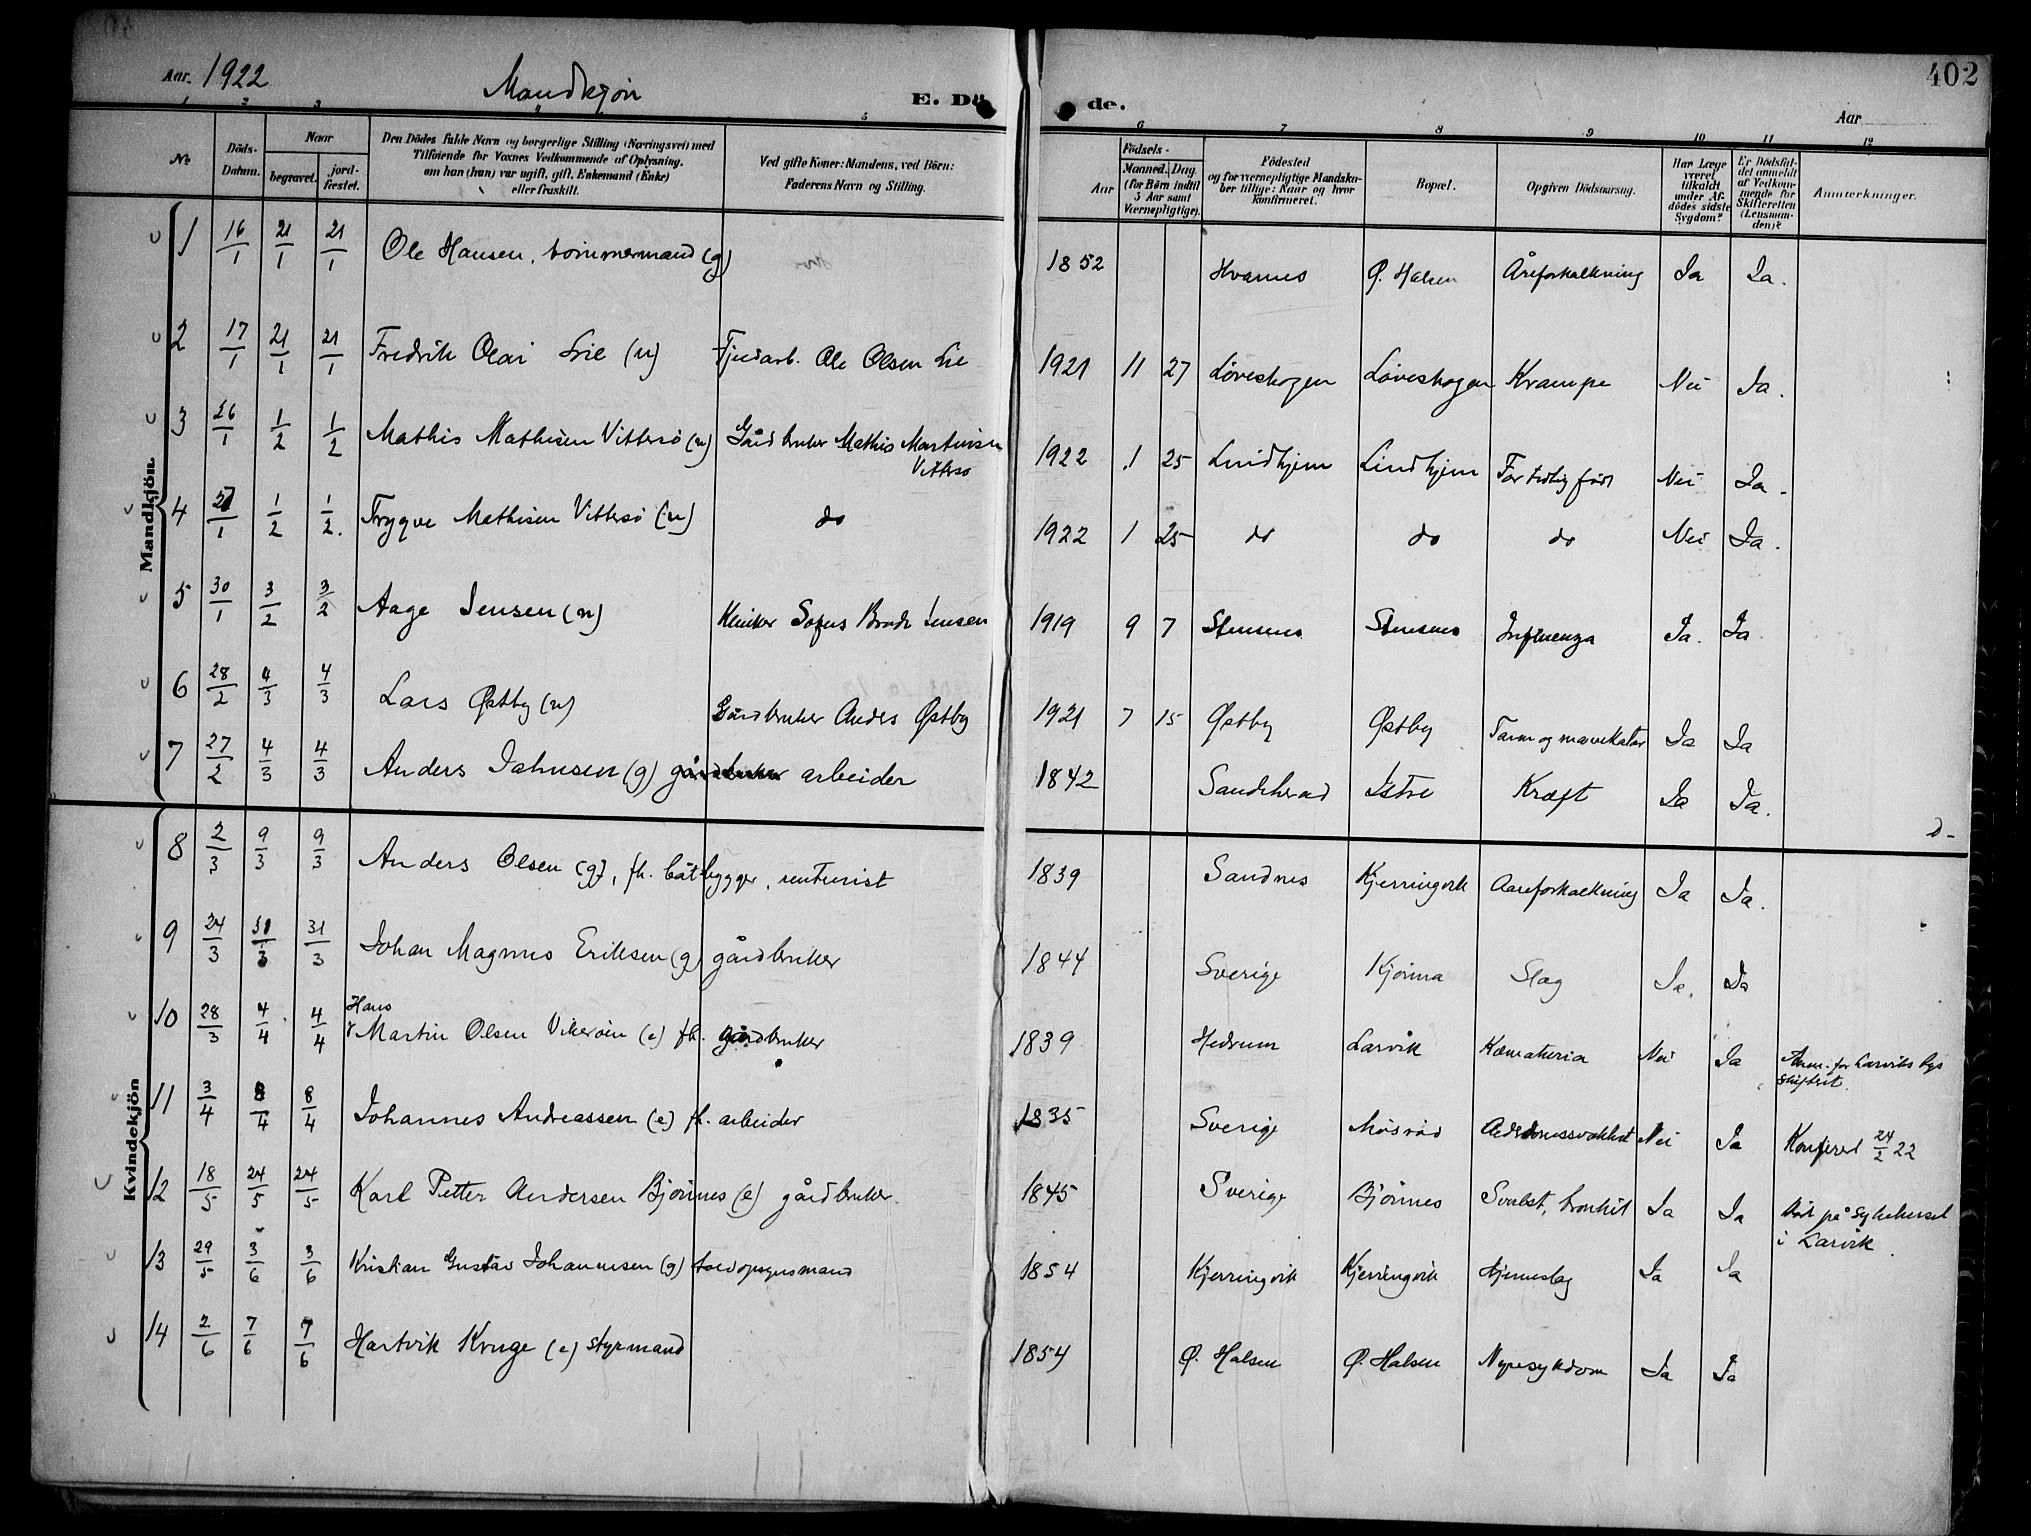 402
Aar. 1922 Mandkjön E. Dö de. Aar
1 2 3 4 5 6 7 8 9 10 11 12
No
Döds-Datum.
Naar
begravet.
jord-fæstet.
Den Dödes fulde Navn og borgerlige Stilling (Næringsvei) med
Tilföiende for Voxnes Vedkommende af Oplysning,
om han (hun) var ugift, gift, Enkemand (Enke)
eller fraskilt.
Ved gifte Koner: Mandens, ved Börn:
Faderens Navn og Stilling.
Födsels-
Aar
Maaned. Dag
(for Börn indtil
5 Aar samt
Værnepligtige).
Födested
og for værnepligtige Mandska-
ber tillige: Naar og hvor
konfirmeret.
Bopæl.
Opgiven Dödsaarsag.
Har Læge
været
tilkaldt
under Af-
dödes sidste
Sygdom?
Er Dödsfal-
det anmeldt
af Vedkom-
mende for
Skifteretten
(Lensman-
den)?
Anmærkninger.
Mandkjön.
Kvindekjön
1 16/1 21/1 21/1 Ole Hansen, tømmermand (g) 1852 Hvarnes Ø. Halsen Åreforkalkning Ja Ja.
2 17/1 21/1 21/1 Fredrik Olai Lie (u) Ole Olsen Lie 1921 11 27 Løveskogen Løveskogen Krampe Nei Ja.
3 26/1 1/2 1/2 Mathis Mathisen Vittersø (u) Gårdbruker Mathis Martinsen
Vittersø
1922 1 25 Lindhjem Lindhjem For tidlig født Nei Ja.
4 27/1 1/2 1/2. Trygve Mathisen Vittersø (u) do 1922 1 25 do do do Nei Ja.
5 30/1 3/2 3/2 Aage Jensen (u) Sofus Jensen 1919 9 7 Stensnes Stensnes Influenza Ja. Ja.
6 28/2 4/3 4/3 Lars Østby (u) Gårdbruker Anders Østby 1921 7 15 Østby Østby Tarm og mavekatar Ja Ja
7 27/2 4/3 4/3 Anders Jahnsen (g) gårdbruker arbeider 1842 Sandeherad Istre Kræft Ja Ja.
8 2/3 9/3 9/3 Anders Olsen (g), fh. båtbygger, rentenist 1839 Sandnes Kjerringvik Aareforkalkning Ja Ja.
9 24/3 31/3 31/3 Johan Magnus Eriksen (g) gårdbruker 1844 Sverige Kjønna Slag Ja. Ja
Hans
10 28/3 4/4 4/4 Martin Olsen Vikerøen (e) fh. gårdbruker 1839 Hedrum Larvik Hæmaturia Nei Ja Anm. for Larviks bys
skifteret.
11 3/4 8/4 8/4 Johannes Andreassen (e) fh. arbeider 1835 Sverige Møsråd Alderdomssvakhet Nei Ja Konfirert 24/2 22
12 18/5 24/5 24/5 Karl Petter Andersen Bjørnes (e) gårdbruker. 1845 Sverige Bjørnes Svulst, bronkit Ja Ja Død på sykehuset
i Larvik.
13 29/5 3/6 3/6 Kristian Gustav Johannesen (g) toldopsynsmand 1854 Kjerringvik Kjerringvik Hjerneslag Ja Ja
14 2/6 7/6 7/6 Hartvik Kruge (e) styrmand 1854 Ø. Halsen Ø. Halsen Nyresykdom Ja Ja